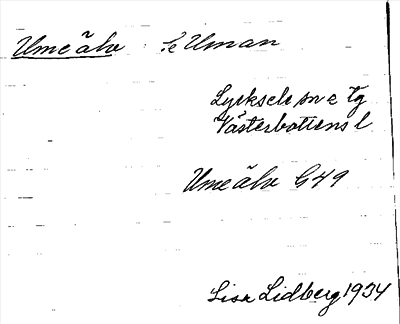 Ume älv Se Uman
Lycksele sn o tg
Västerbottens l
Ume älv G49
Lisa Lidberg 1934